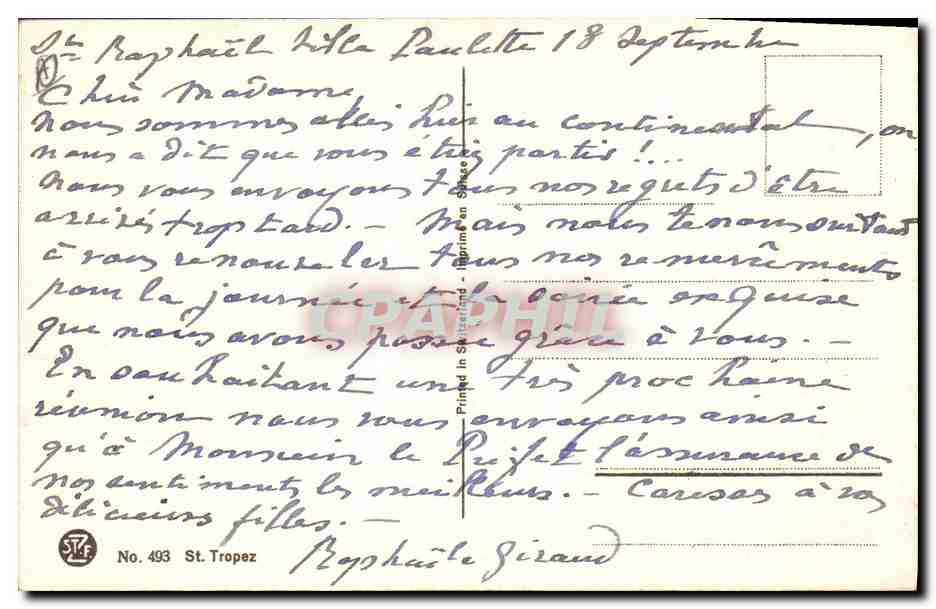 St Raphaël Villa Paulette 18 Septembre
Chère Madame,
nous sommes allés hier au continental, on
nous a dit que vous étiez partis !...
nous vous envoyons tous nos regrets d'être
arrivés trop tard. - Mais nous tenons surtout
à vous renouveler tous nos remerciements
pour la journée et la soirée exquise
que nous avons passée grâce à vous. -
En souhaitant une très prochaine
réunion nous vous envoyons ainsi
qu'à Monsieur le Préfet l'assurance de
nos sentiments les meilleurs. - Caresses à vos
délicieuses filles. -
Raphaële Giraud
Printed in Switzerland - Imprimé en Suisse
CPAPHIL
STZF
No. 493 St. Tropez